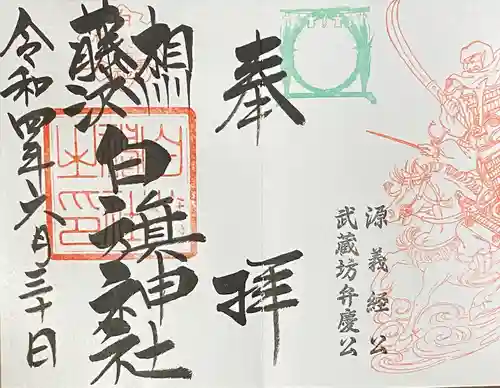 源義経公
武蔵坊弁慶公
奉拝
相州
藤沢白旗神社
令和四年六月三十日